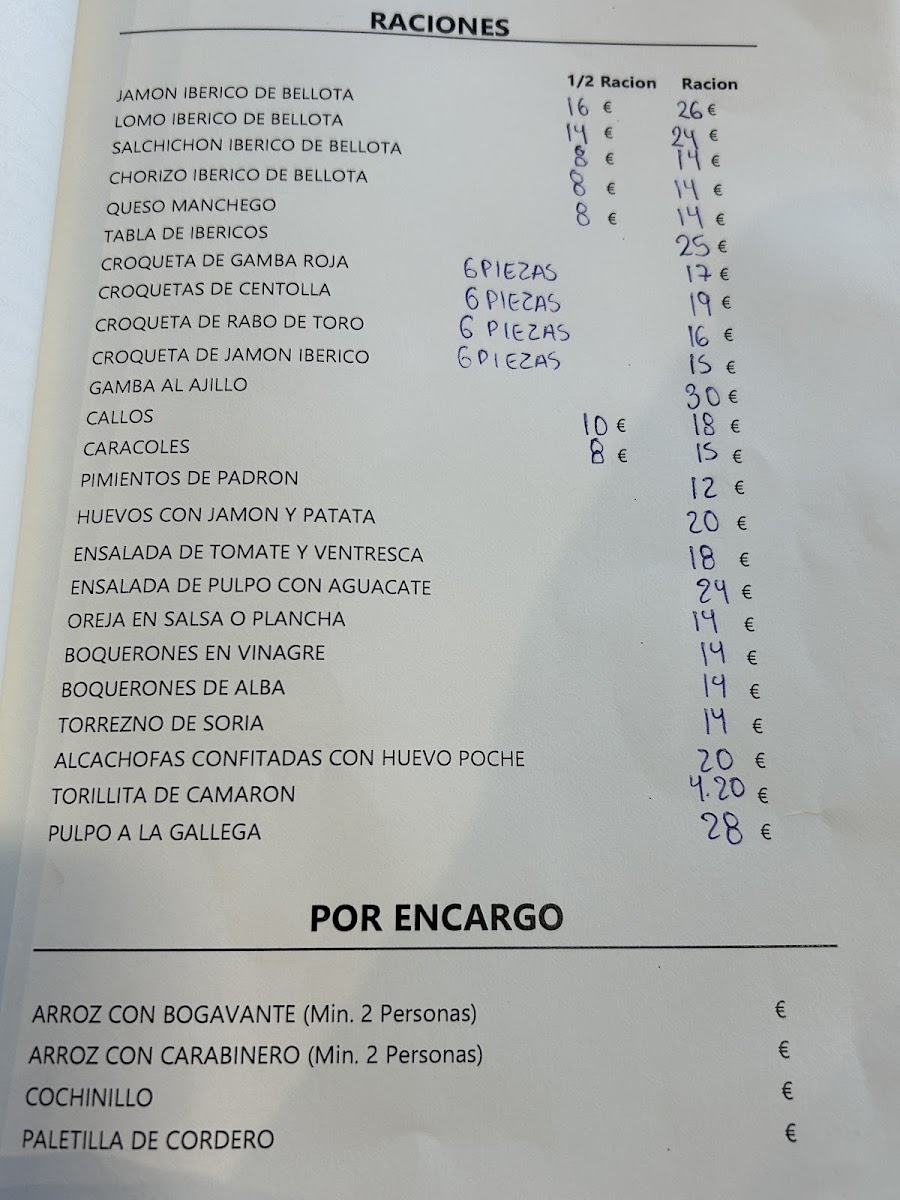 RACIONES
1/2 Racion Racion
JAMON IBERICO DE BELLOTA 16 € 26 €
LOMO IBERICO DE BELLOTA 14 € 24 €
SALCHICHON IBERICO DE BELLOTA 8 € 14 €
CHORIZO IBERICO DE BELLOTA 8 € 14 €
QUESO MANCHEGO 8 € 14 €
TABLA DE IBERICOS 25 €
CROQUETA DE GAMBA ROJA 6 PIEZAS 17 €
CROQUETAS DE CENTOLLA 6 PIEZAS 19 €
CROQUETA DE RABO DE TORO 6 PIEZAS 16 €
CROQUETA DE JAMON IBERICO 6 PIEZAS 15 €
GAMBA AL AJILLO 30 €
CALLOS 10 € 18 €
CARACOLES 8 € 15 €
PIMIENTOS DE PADRON 12 €
HUEVOS CON JAMON Y PATATA 20 €
ENSALADA DE TOMATE Y VENTRESCA 18 €
ENSALADA DE PULPO CON AGUACATE 24 €
OREJA EN SALSA O PLANCHA 14 €
BOQUERONES EN VINAGRE 14 €
BOQUERONES DE ALBA 14 €
TORREZNO DE SORIA 14 €
ALCACHOFAS CONFITADAS CON HUEVO POCHE 20 €
TORILLITA DE CAMARON 4.20 €
PULPO A LA GALLEGA 28 €
POR ENCARGO
ARROZ CON BOGAVANTE (Min. 2 Personas) €
ARROZ CON CARABINERO (Min. 2 Personas) €
COCHINILLO €
PALETILLA DE CORDERO €